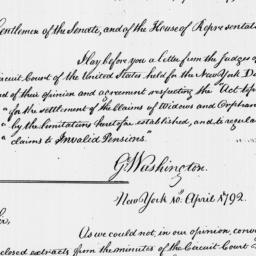 Gentlemen of the Senate, and of the House of Represental
I lay before you a letter from the Judges of
Circuit Court of the United States held for the New York Di
and of their opinion and agreement respecting the "Act to p
"for the settlement of the Claims of Widows and Orphans
"by the limitations heretofore established, and to regulat
"claims to Invalid Pensions."
G: Washington.
New York 10th April 1792.
Sir,
As we could not, in our opinion, conv
closed extracts from the minutes of the Circuit Court